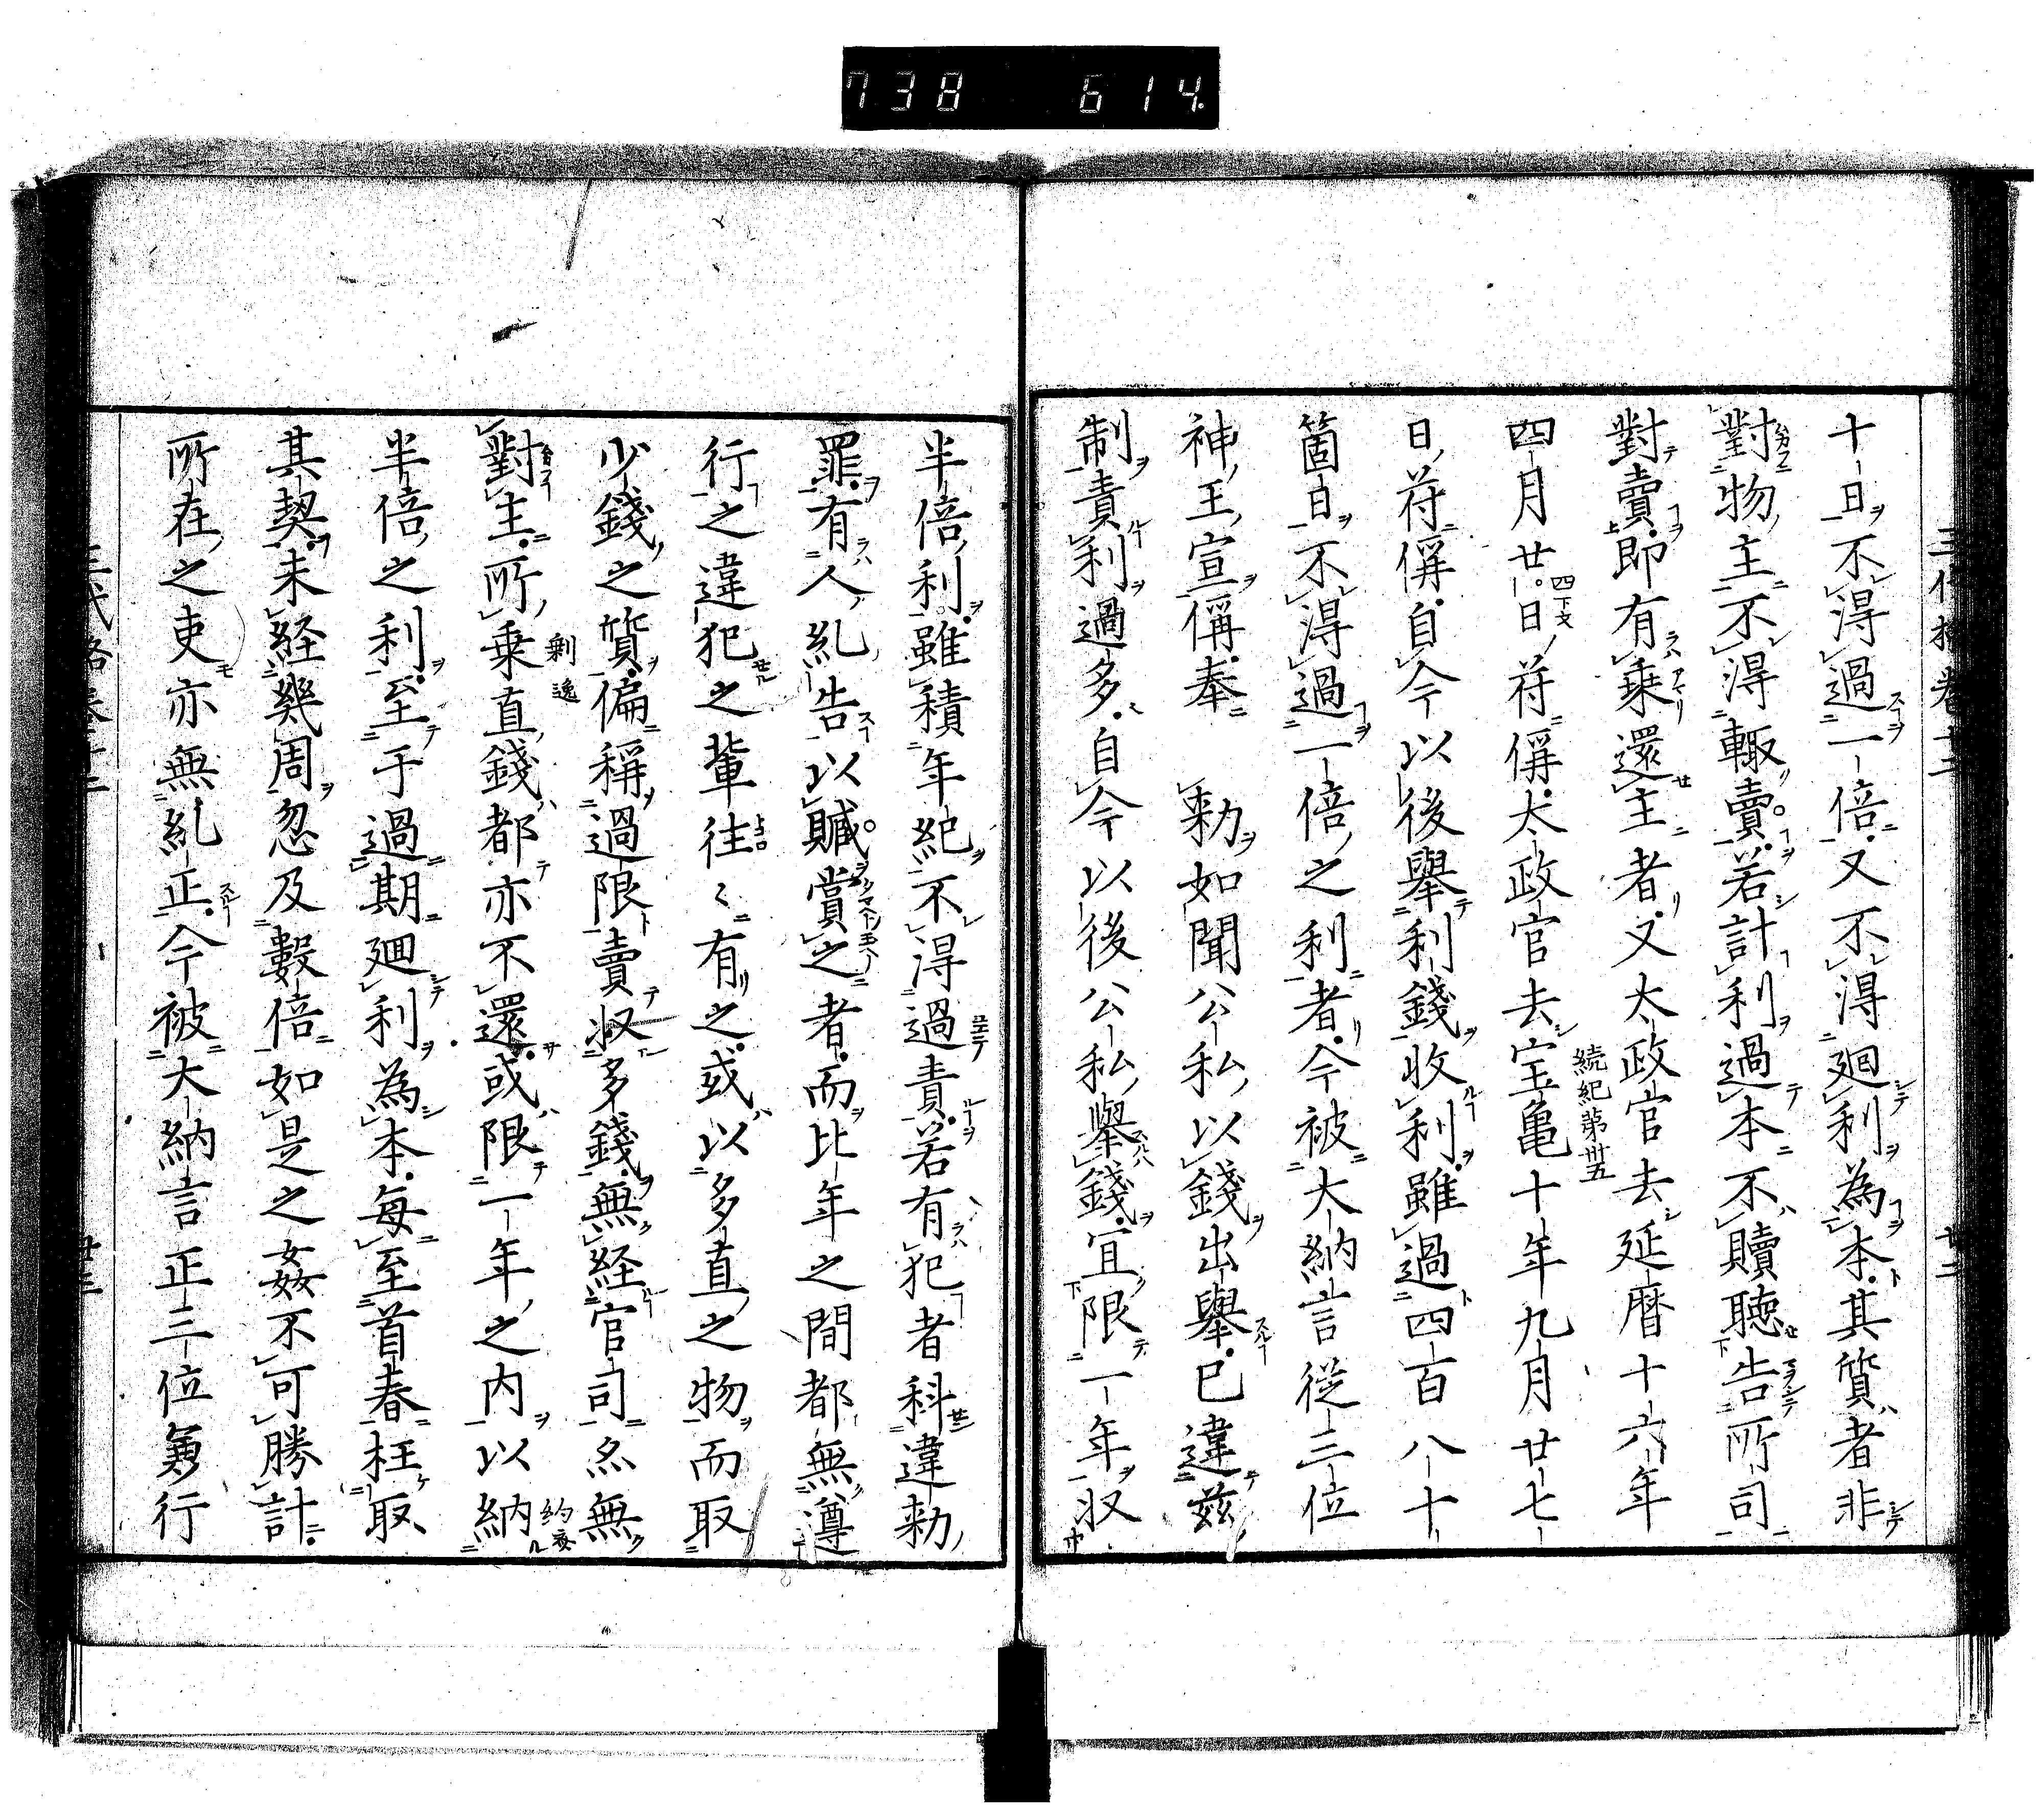 738 614
十日不得過一倍又不得廻利為本其質者非
對物主不得輙賣若計利過本不贖聴告所司
對賣即有乗還主者又太政官去延暦十六年
四月廿日符偁太政官去宝亀十年九月廿七
四下文
続紀第卅五
日符偁自今以後擧利錢收利雖過四百八十
箇日不得過一倍之利者今被大納言従三位
神王宣偁奉 勅如聞公私以錢出擧已違茲
制責利過多自今以後公私擧錢宜限一年収
半倍利雖積年紀不得過責若有犯者科違勅
罪有人糺告以贓賞之者而比年之間都無遵
行之違犯之輩往々有之或以多直之物而取
少錢之質偏稱過限賣収多錢無経官司亦無
對主所乗直錢都亦不還或限一年之内以納
剰逸
約
半倍之利至于過期廻利為本毎至首春枉取
其契未経幾周忽及數倍如是之姦不可勝計
所在之吏亦無糺正今被大納言正三位兼行